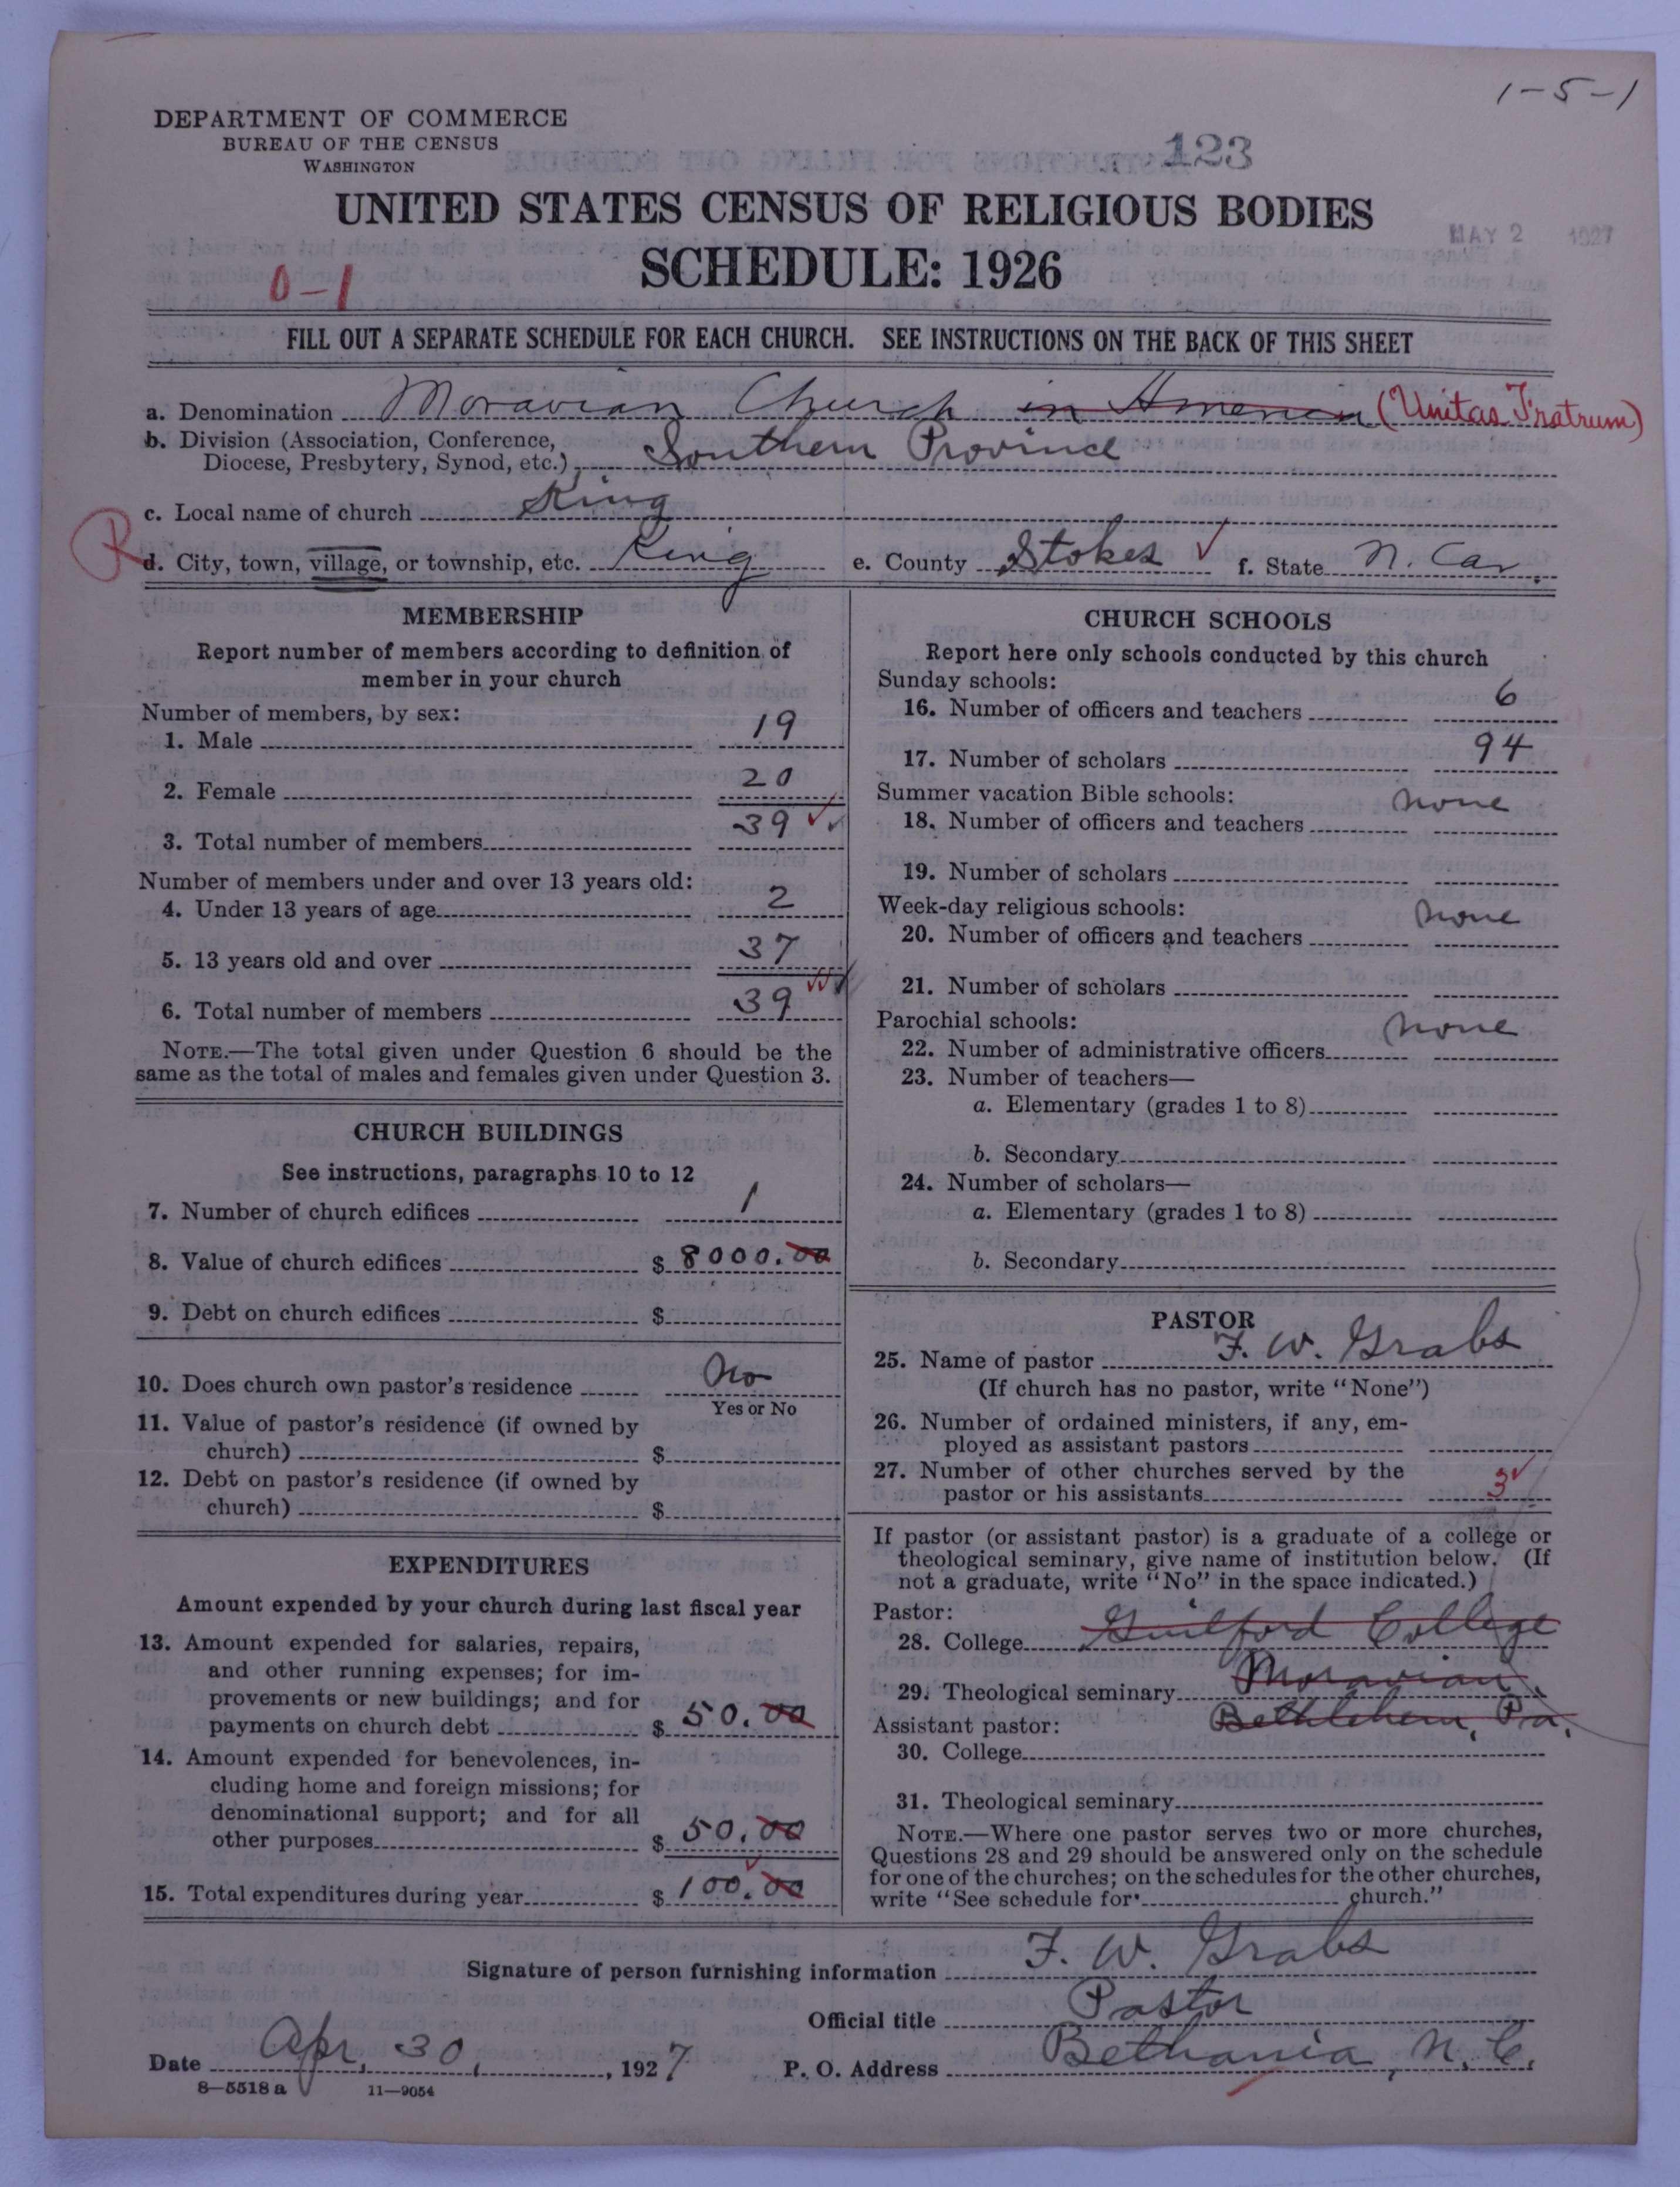 1-5-1
DEPARTMENT OF COMMERCE
BUREAU OF THE CENSUS
WASHINGTON
123
UNITED STATES CENSUS OF RELIGIOUS BODIES
MAY 2 1927
SCHEDULE: 1926
0-1
FILL OUT A SEPARATE SCHEDULE FOR EACH CHURCH. SEE INSTRUCTIONS ON THE BACK OF THIS SHEET
a. Denomination Moravian Church in America (Unitas Fratrum)
b. Division (Association, Conference,
Diocese, Presbytery, Synod, etc.) Southern Province
c. Local name of church King
R
d. City, town, village, or township, etc. King e. County Stokes ✓ f. State N. Car.
MEMBERSHIP
Report number of members according to definition of
member in your church
Number of members, by sex:
1. Male 19
2. Female 20
3. Total number of members 39 ✓✓
Number of members under and over 13 years old:
4. Under 13 years of age 2
5. 13 years old and over 37
6. Total number of members 39 ✓✓✓
NOTE.—The total given under Question 6 should be the
same as the total of males and females given under Question 3.
CHURCH BUILDINGS
See instructions, paragraphs 10 to 12
7. Number of church edifices 1
8. Value of church edifices $ 8000.00
9. Debt on church edifices $
10. Does church own pastor's residence No
Yes or No
11. Value of pastor's residence (if owned by
church) $
12. Debt on pastor's residence (if owned by
church) $
EXPENDITURES
Amount expended by your church during last fiscal year
13. Amount expended for salaries, repairs,
and other running expenses; for im-
provements or new buildings; and for
payments on church debt $ 50.00
14. Amount expended for benevolences, in-
cluding home and foreign missions; for
denominational support; and for all
other purposes $ 50.00
15. Total expenditures during year $ 100.00 ✓
CHURCH SCHOOLS
Report here only schools conducted by this church
Sunday schools:
16. Number of officers and teachers 6
17. Number of scholars 94
Summer vacation Bible schools: none
18. Number of officers and teachers
19. Number of scholars
Week-day religious schools: none
20. Number of officers and teachers
21. Number of scholars
Parochial schools: none
22. Number of administrative officers
23. Number of teachers—
a. Elementary (grades 1 to 8)
b. Secondary
24. Number of scholars—
a. Elementary (grades 1 to 8)
b. Secondary
PASTOR
25. Name of pastor F. W. Grabs
(If church has no pastor, write "None")
26. Number of ordained ministers, if any, em-
ployed as assistant pastors
27. Number of other churches served by the
pastor or his assistants 3 ✓
If pastor (or assistant pastor) is a graduate of a college or
theological seminary, give name of institution below. (If
not a graduate, write "No" in the space indicated.)
Pastor:
28. College Guilford College
29. Theological seminary Moravian,
Bethlehem, Pa.
Assistant pastor:
30. College
31. Theological seminary
NOTE.—Where one pastor serves two or more churches,
Questions 28 and 29 should be answered only on the schedule
for one of the churches; on the schedules for the other churches,
write "See schedule for church."
Signature of person furnishing information F. W. Grabs
Official title Pastor
Date Apr. 30, 1927 P. O. Address Bethania, N. C.
8—5518 a 11—9054